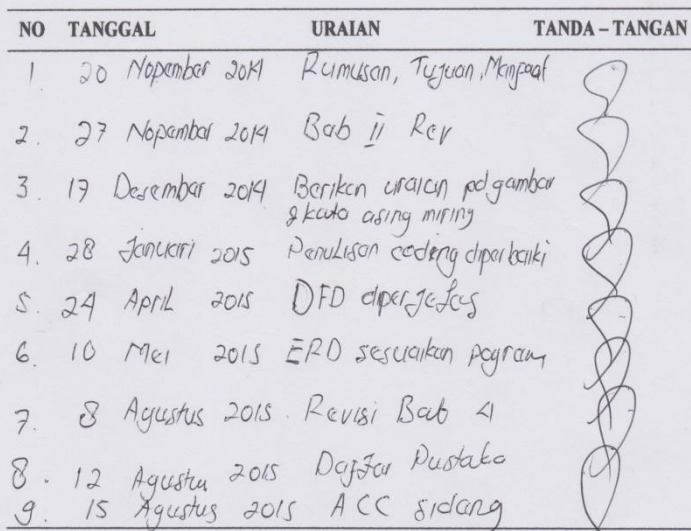 NO TANGGAL URAIAN TANDA – TANGAN
1 20 Nopember 2014 Rumusan, Tujuan, Manfaat
2. 27 Nopember 2014 Bab II Rev
3. 17 Desember 2014 Berikan uraian pd gambar
& kata asing miring
4. 28 Januari 2015 Penulisan coding diperbaiki
5. 24 April 2015 DFD diperjelas
6. 10 Mei 2015 ERD sesuaikan pogram
7. 8 Agustus 2015. Revisi Bab 4
8. 12 Agustus 2015 Daftar Pustaka
9. 15 Agustus 2015 ACC sidang